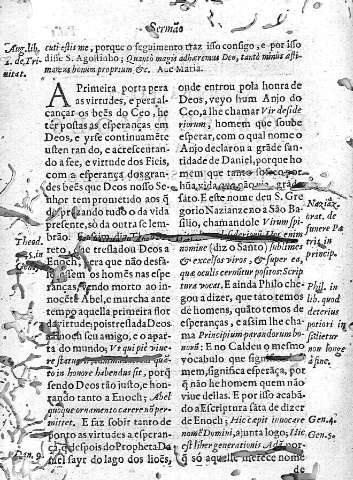 Sermão
Ang. lib.
2. de Tri-
nitat.
cuti estis me, porque o seguimento traz isso consigo, e por isso
disse S. Agostinho; Quantò magis adhæremus Deo, tantò minùs æsti-
mamus bonum proprium &c. Ave Maria.
A Primeira porta pera
as virtudes, e pera al-
cançar os beẽs do Ceo, he
ter postas as esperanças em
Deos, e yrse continuamẽte
sustentando, e acrescentan-
do a fee, e virtude dos Fieis,
com a esperança dos gran-
des beẽs que Deos nosso Se-
nhor tem prometido aos q̃
desprezando tudo o da vida
presente, sò da outra se lem-
brão.
reto, que tresladou Deos a
Enoch, pera que não desfa-
lecessem os homẽs nas espe-
ranças, vendo morto ao in-
nocẽte Abel, o murcha ante
tempo aquella primeira flor
da virtude; pois treslada Deos
a Enoch seu amigo, e o apar-
ta do mundo; Ut qui pie vive-
re
to in honore habendus sit, porq̃
sendo Deos tão justo, e hon-
rando tanto a Enoch; Abel
quoque ornamento carere nõ per-
mittet. E faz sobir tanto de
ponto as virtudes a esperan-
ça, q̃ depois do Propheta Da-
niel sayr do lago dos lioẽs,
Theod.
in
Gen.
Dan. 9.
onde entrou pola honra de
Deos, veyo hum Anjo do
Ceo, a lhe chamar Vir deside-
riorum, homem que soube
esperar, com o qual nome o
Anjo declarou a grãde san-
tidade de Daniel, porque ho
mem que tanto
hũa vida que não
sato. E este nome deu S. Gre
gorio Nazianzeno a São Ba-
silio, chamandole Virum
desideriorum. Hoc enim
nomine (diz o Santo) sublimes
& excelsos viros, & super ea,
quæ oculis cernũtur positos: Scrip
tura vocat. E ainda Philo che-
gou a dizer, que tãto temos
de homens, quãto temos de
esperanças, e assim lhe cha-
ma Principium parandorum bo-
norũ. E no Caldeu o mesmo
vocabulo que
mem, significa esperãça, por
q̃ não he homem quem não
viue dellas. E por isso acaba-
do a Escriptura sãta de dizer
de Enoch; Hic cæpit invocare
nomen Domini, ajunta logo; Hic
est liber generationis Adã, por-
q̃ sò aquelle merece nome
de
Naziãz.
orat. de
funere Pa
tris, in
princip.
Phil. in
lib. quod
deterius
potiori in
sidietur
non longe
à fine.
Gen. 4.
Gen. 5.